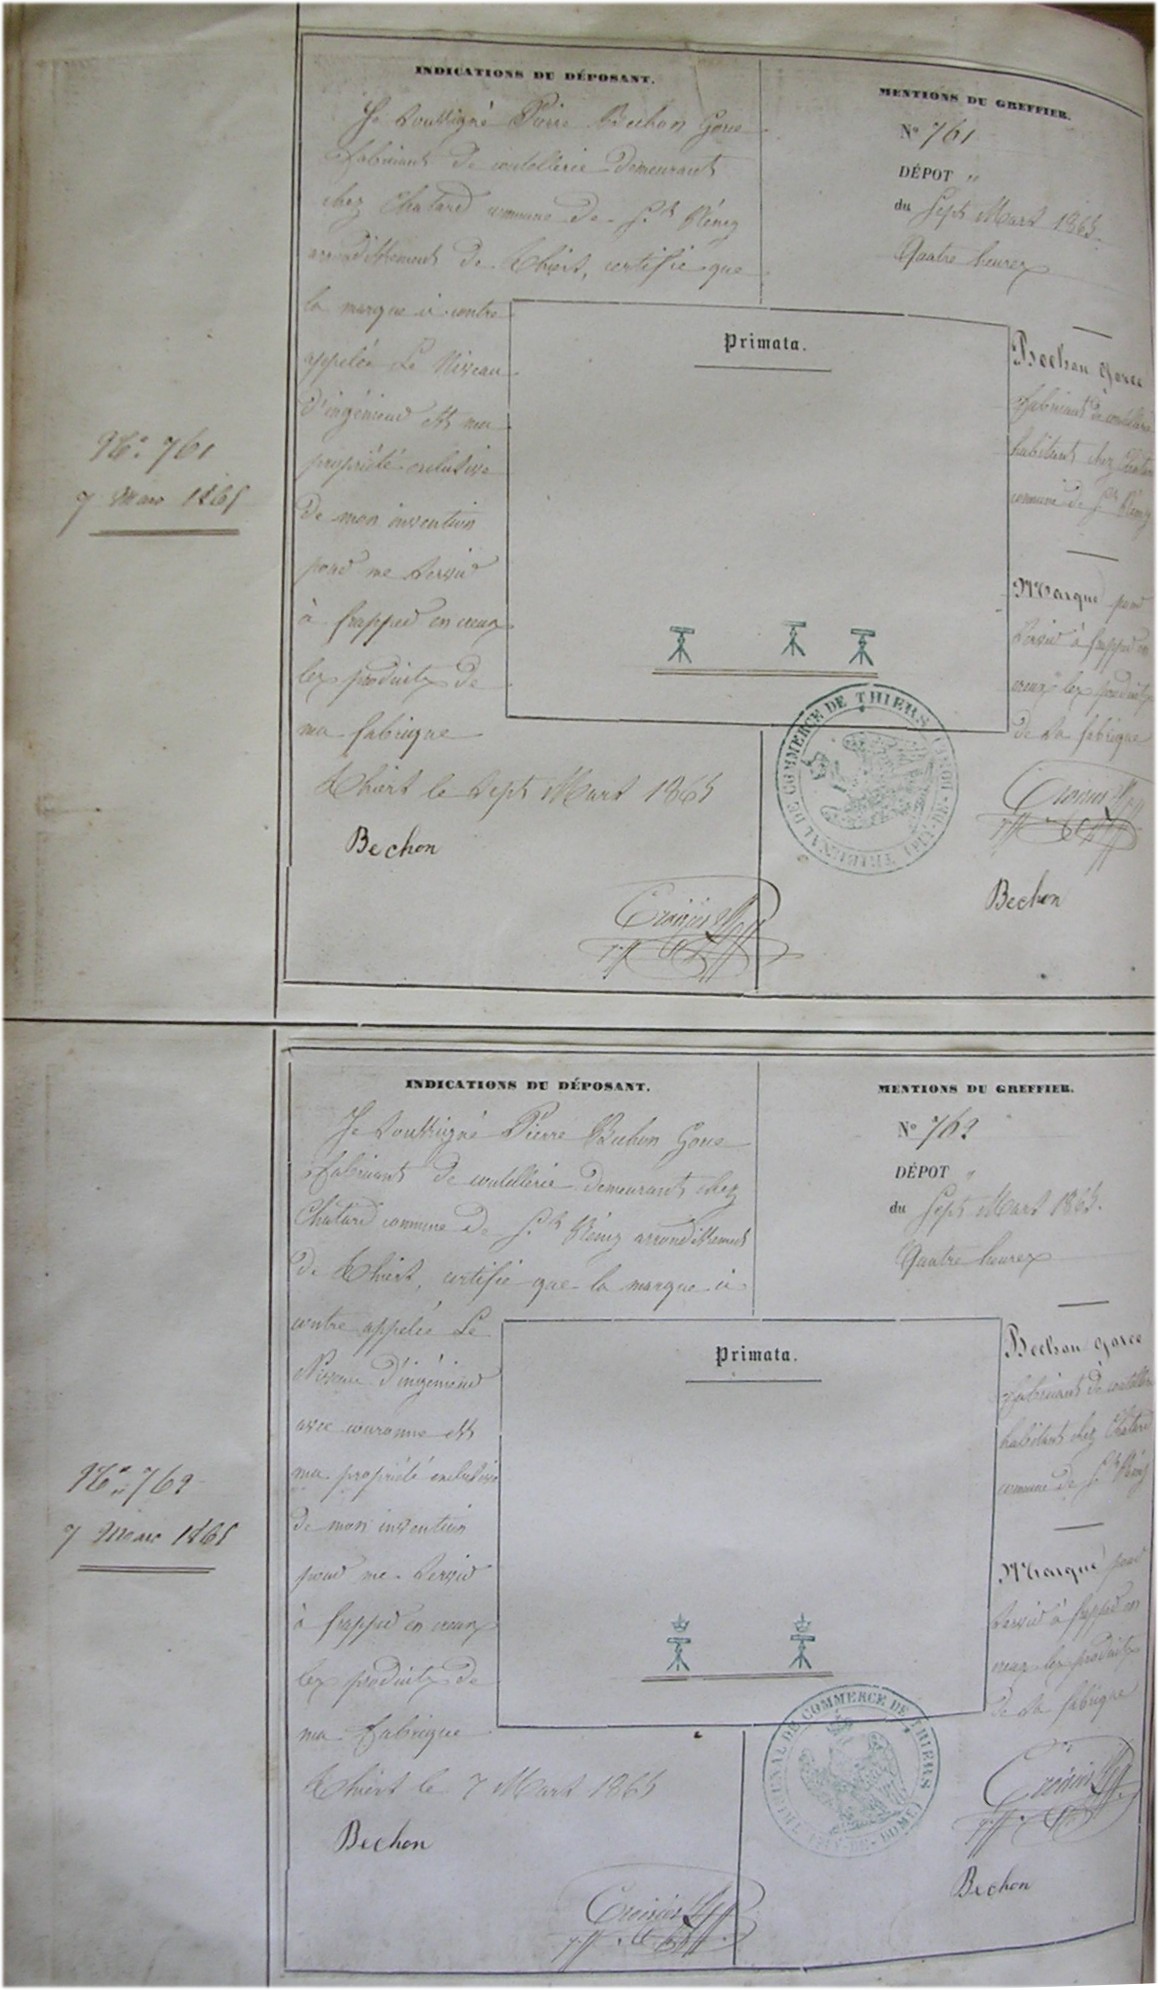 INDICATIONS DU DÉPOSANT.
Je soussigné Pierre Bechon Gorce
fabricant de coutellerie demeurant
chez Chatard commune de St Rémy
arrondissement de Thiers, certifie que
la marque ci contre
appelée Le Niveau
d'ingénieur est ma
propriété exclusive
de mon invention
pour me servir
à frapper en creux
les produits de
ma fabrique
Thiers le sept Mars 1865
Bechon
MENTIONS DU GREFFIER.
N° 761
DÉPOT "
du Sept Mars 1865.
Quatre heures
Primata.
Bechon Gorce
fabricant de coutellerie
habitant chez Chatard
commune de St Rémy
Marque pour
servir à frapper en
creux les produits
de sa fabrique
Bechon
TRIBUNAL DE COMMERCE DE THIERS (PUY-DE-DOME)
N° 761
7 Mars 1865
INDICATIONS DU DÉPOSANT.
Je soussigné Pierre Bechon Gorce
fabricant de coutellerie demeurant chez
Chatard commune de St Rémy arrondissement
de Thiers, certifie que la marque ci
contre appelée Le
Niveau d'ingénieur
avec couronne est
ma propriété exclusive
de mon invention
pour me servir
à frapper en creux
les produits de
ma fabrique
Thiers le 7 Mars 1865
Bechon
MENTIONS DU GREFFIER.
N° 762
DÉPOT "
du Sept Mars 1865.
Quatre heures
Primata.
Bechon Gorce
fabricant de coutellerie
habitant chez Chatard
commune de St Rémy
Marque pour
servir à frapper en
creux les produits
de sa fabrique
Bechon
TRIBUNAL DE COMMERCE DE THIERS (PUY-DE-DOME)
N° 762
7 Mars 1865